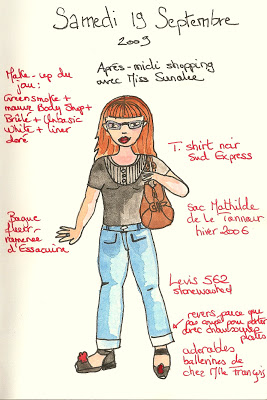 Samedi 19 Septembre
2009
Après-midi shopping
avec Miss Sunalee
Make-up du
jour :
Greensmoke +
mauve Body Shop +
Brûlé + Vintasic
White + liner
doré
T. shirt noir
Sud Express
Sac Mathilde
de Le Tanneur
hiver 2006
Bague
fleur
ramenée
d'Essaouira
Levis 562
stonewashed
revers parce que
pas coupé pour porter
avec chaussures
plates
adorables
ballerines de
chez Mlle François